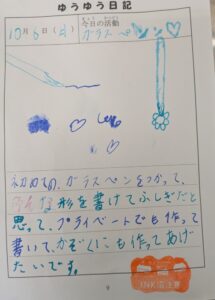 ゆうゆう日記
10月6日(
今日の活動
ガラスペン
初めての、ガラスペンをつかって、
色々な形を書けてふしぎだと
思って、プライベートでも作って
書いて、かぞくにも作ってあげ
たいです。
9